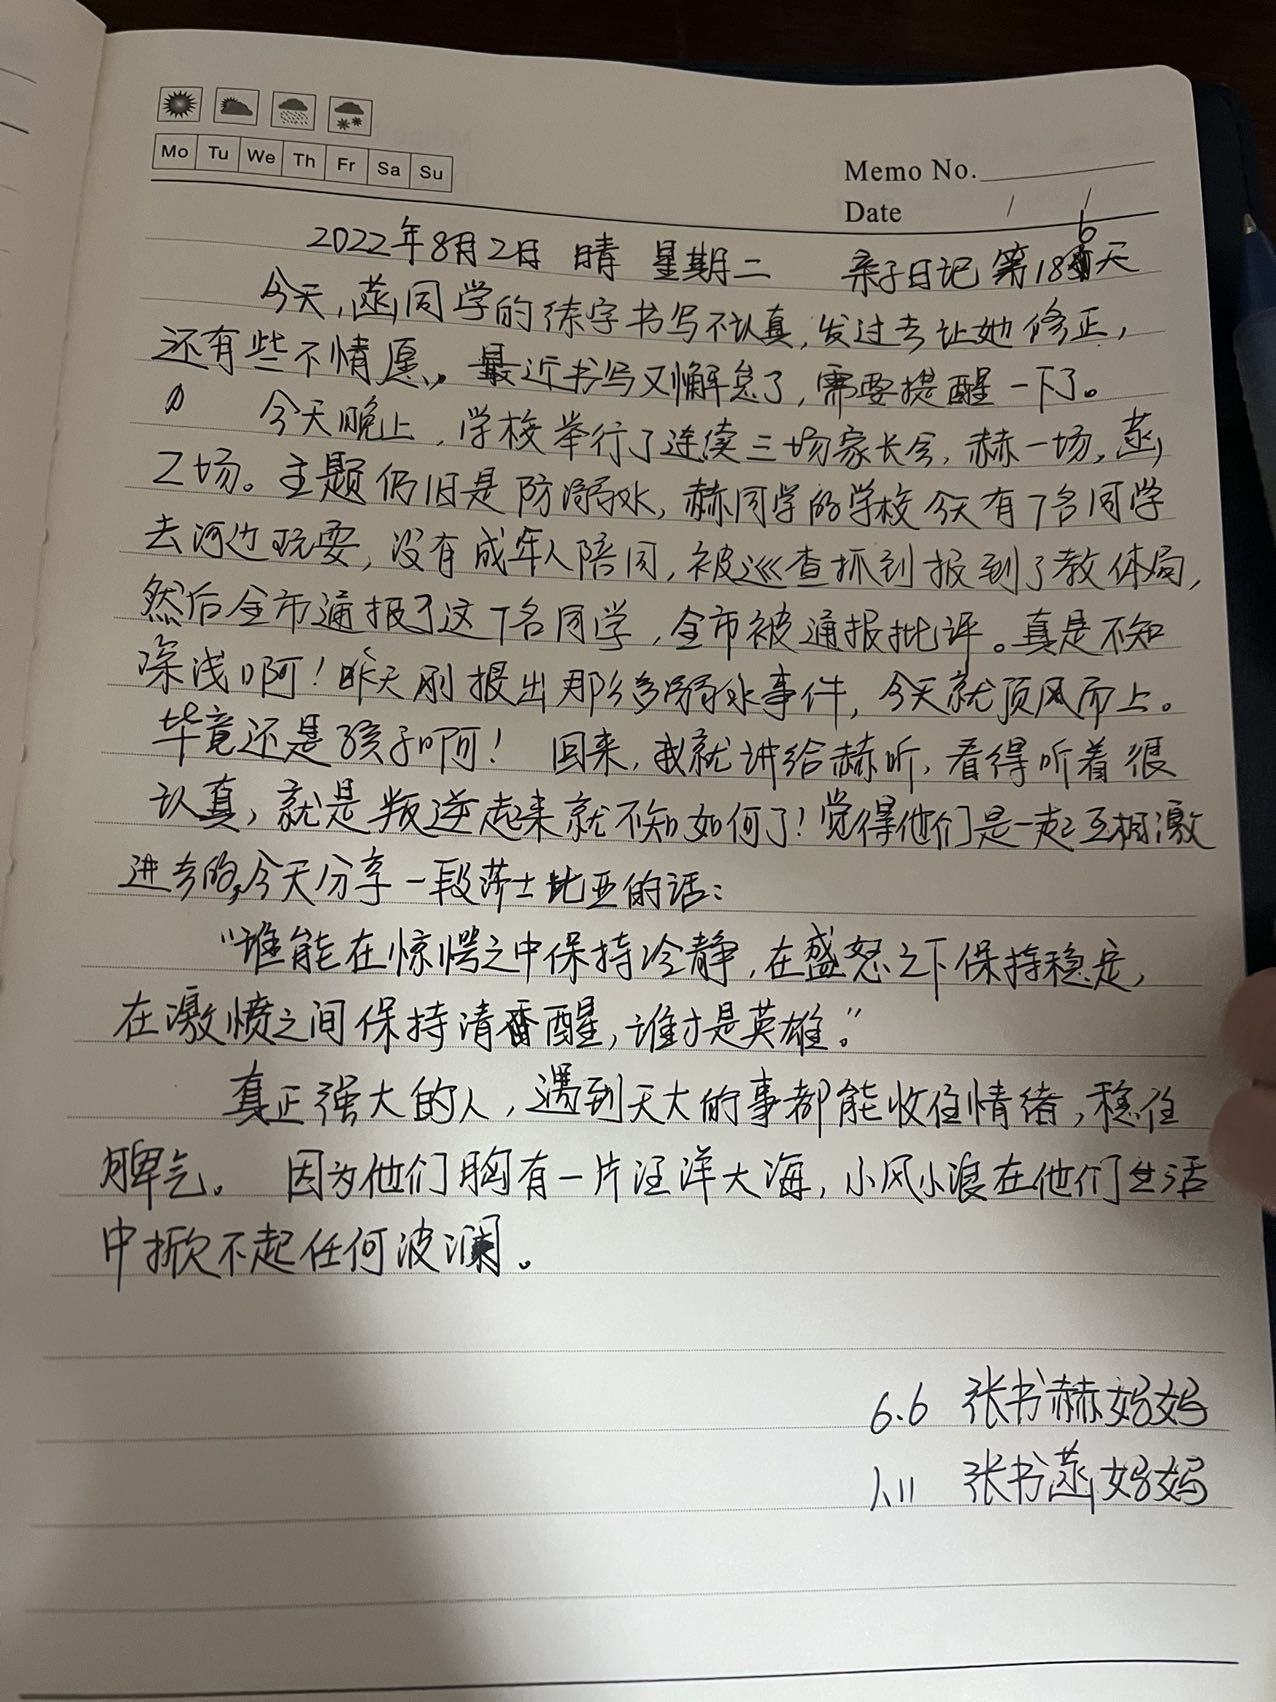 Mo Tu We Th Fr Sa Su
Memo No.
Date / /
2022年8月2日 晴 星期二 亲子日记 第186天
今天,菡同学的练字书写不认真,发过去让她修正,
还有些不情愿,, 最近书写又懈怠了,需要提醒一下了。
今天晚上,学校举行了连续三场家长会,赫一场,菡
2场。主题仍旧是防溺水,赫同学的学校今天有7名同学
去河边玩耍,没有成年人陪同,被巡查抓到报到了教体局,
然后全市通报了这7名同学,全市被通报批评。真是不知
深浅啊!昨天刚报出那么多溺水事件,今天就顶风而上。
毕竟还是孩子啊! 回来,我就讲给赫听,看得听着很
认真,就是叛逆起来就不知如何了!觉得他们是一起互相激
进去的,今天分享一段莎士比亚的话:
“谁能在惊愕之中保持冷静,在盛怒之下保持稳定,
在激愤之间保持清醒,谁才是英雄。”
真正强大的人,遇到天大的事都能收住情绪,稳住
脾气。 因为他们胸有一片汪洋大海,小风小浪在他们生活
中掀不起任何波澜。
6.6 张书赫妈妈
1.11 张书菡妈妈